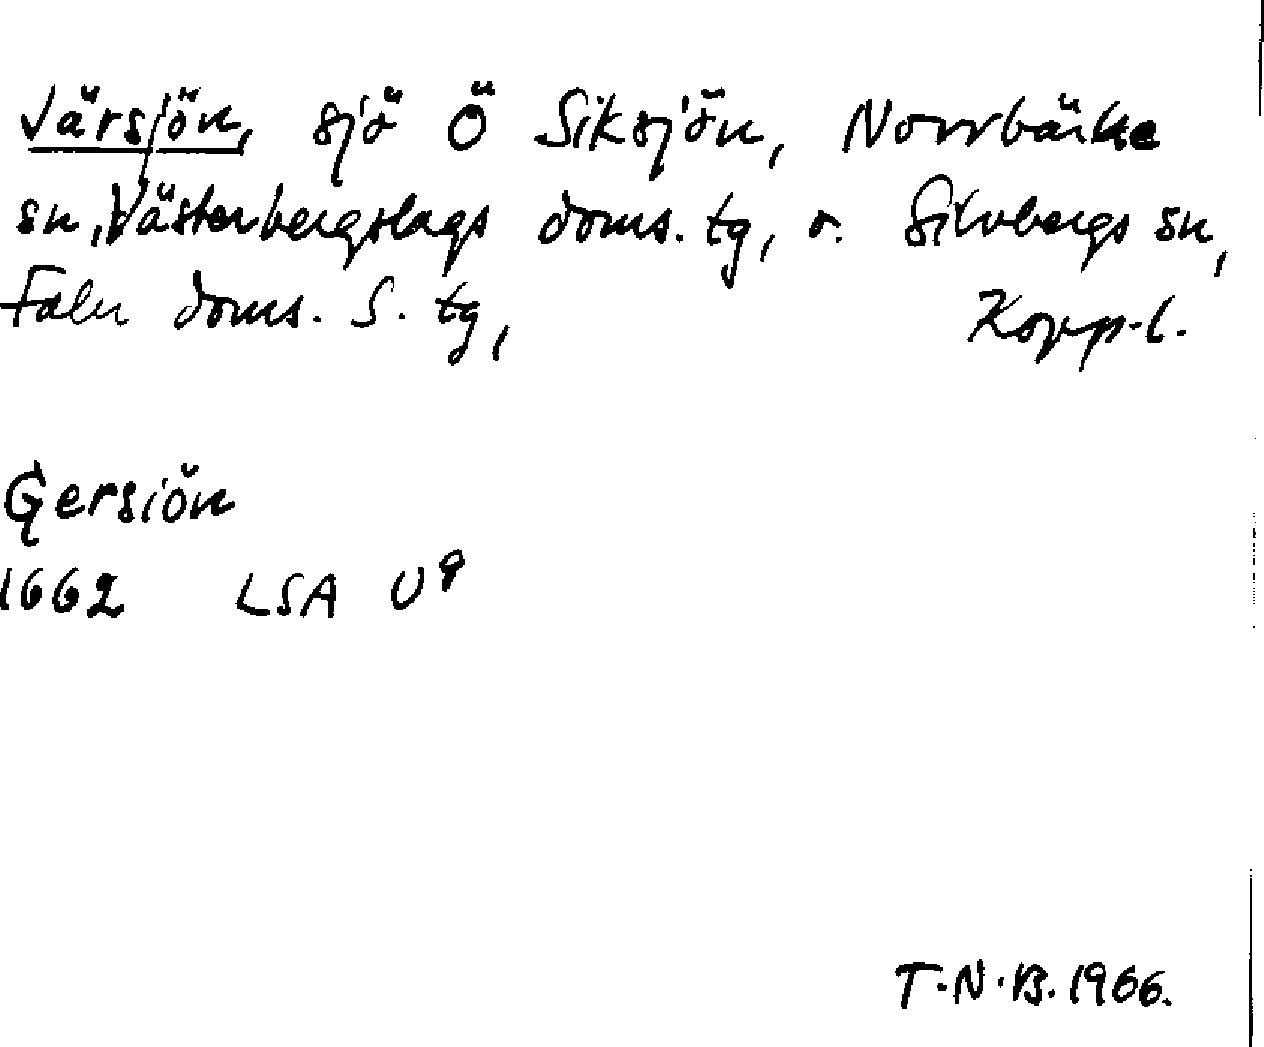 Järsjön, sjö Ö Siksjön, Norrbärke
sn, Västerbergslags doms. tg, o. Silvbergs sn,
Falu doms. S. tg, Kopp.l.
Gersiön
1662 LSA U9
T.N.B. 1966.